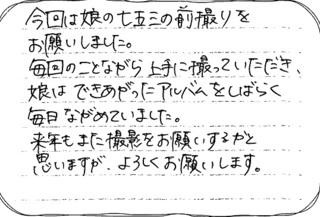 今回は娘の七五三の前撮りを
お願いしました。
毎回のことながら上手に撮っていただき、
娘はできあがったアルバムをしばらく
毎日ながめていました。
来年もまた撮影をお願いするかと
思いますが、よろしくお願いします。